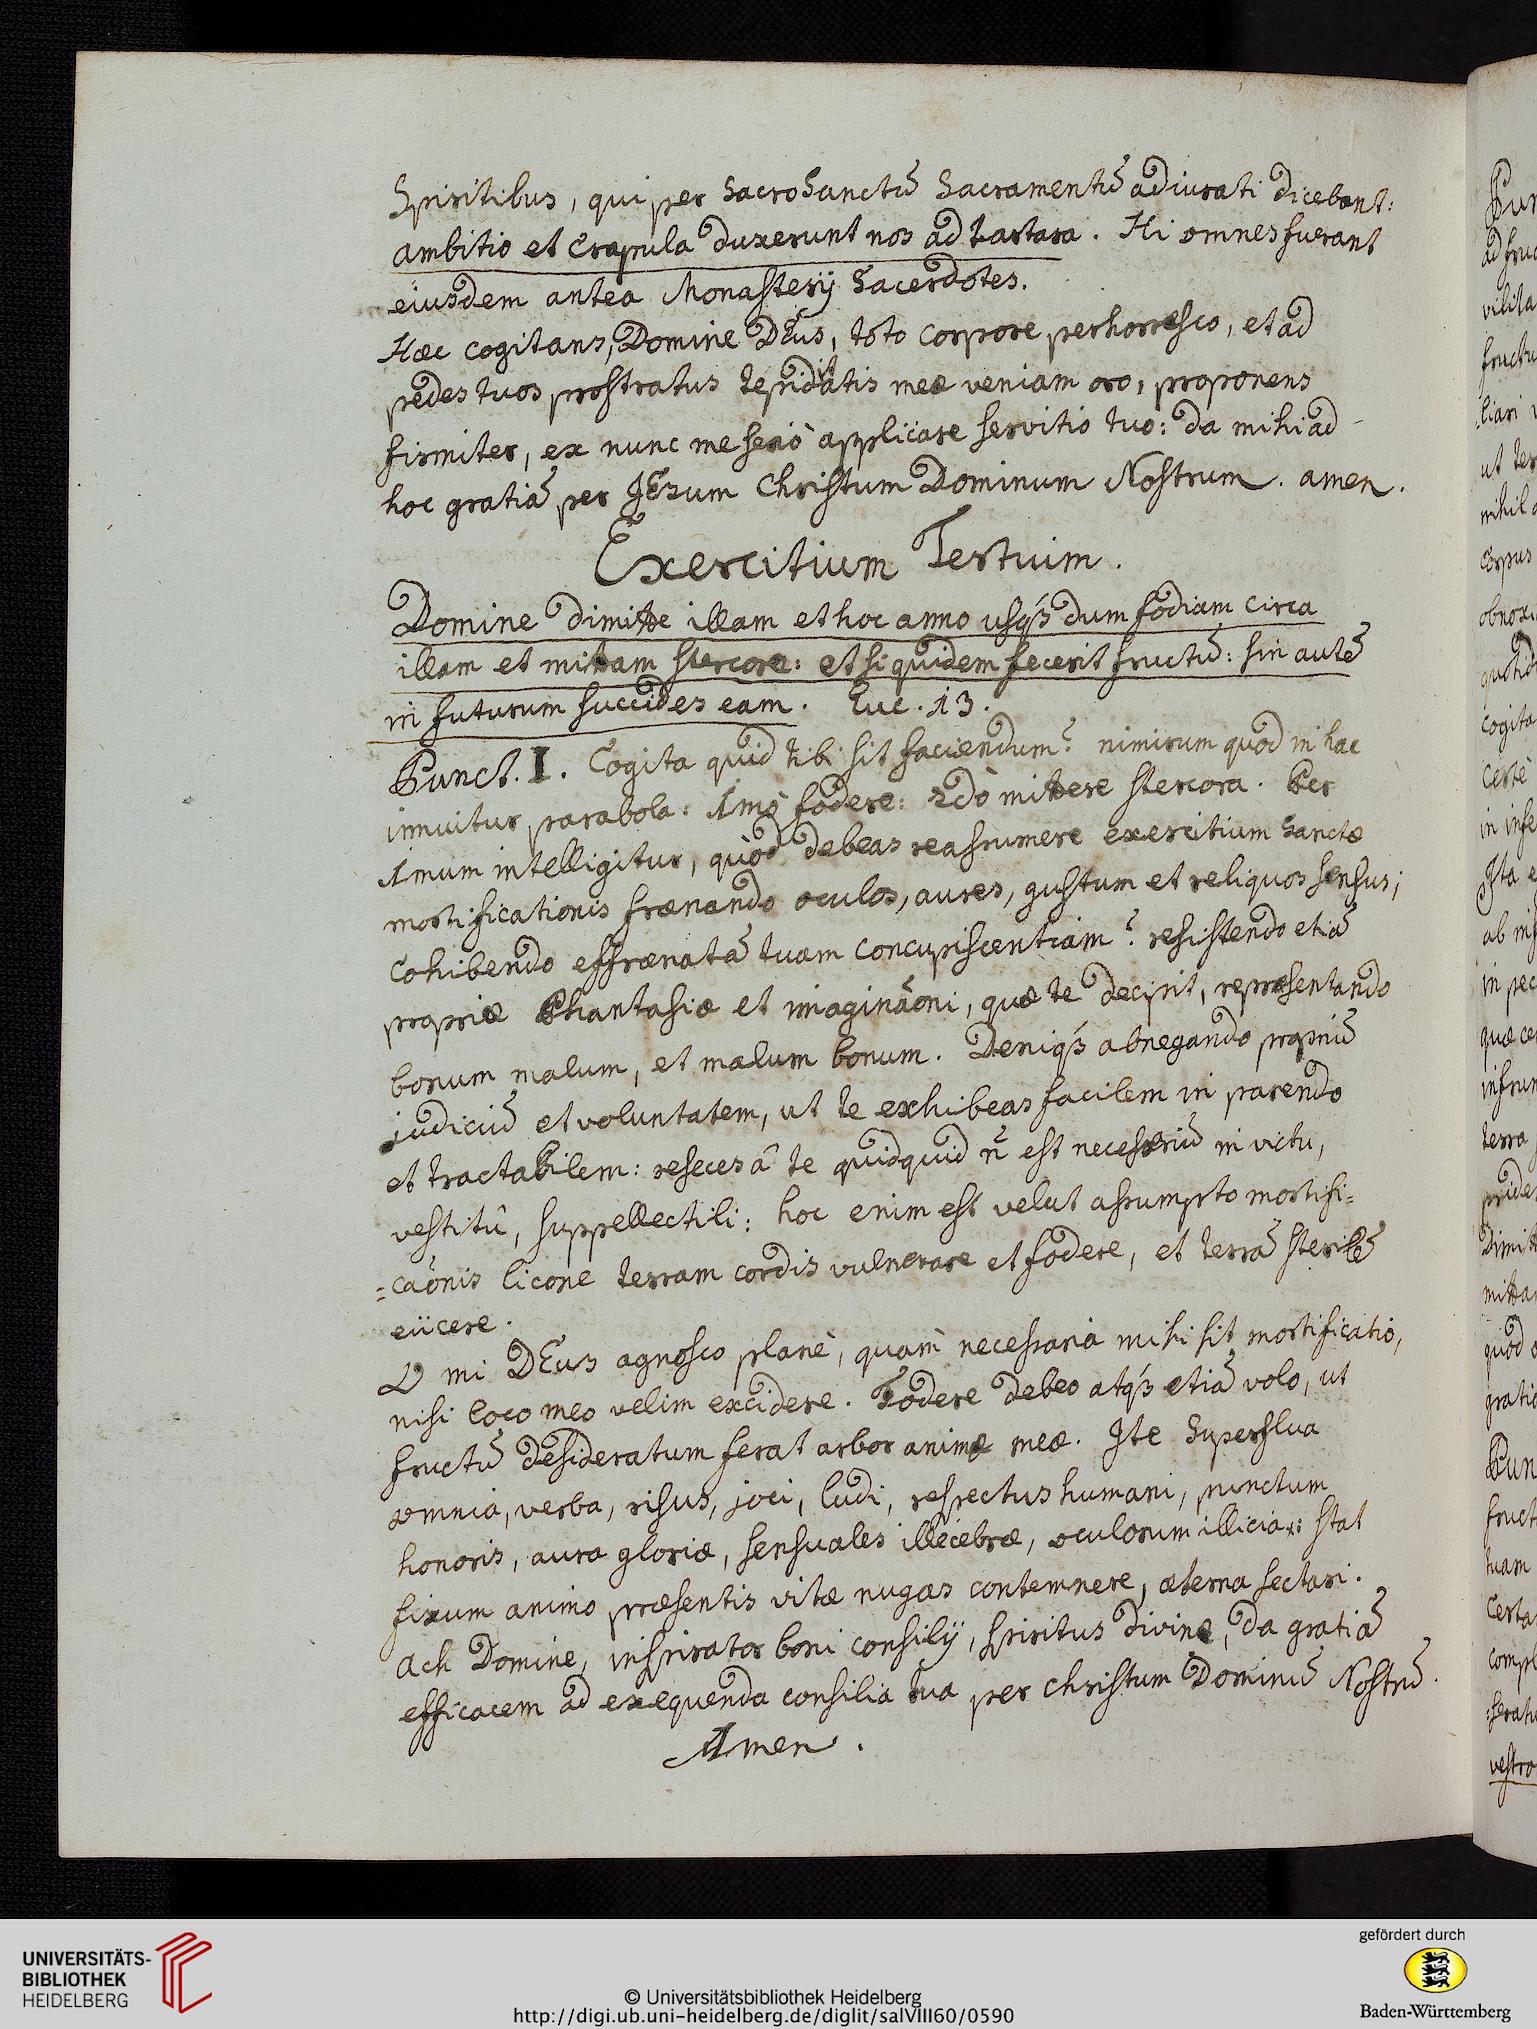 Spiritibus, qui per SacroSanctũ Sacramentũ adiurati dicebant:
ambitio et Crapula duxerunt nos ad tartara. Hi omnes fuerant
eiusdem antea Monasterij Sacerdotes.
Hæc cogitans, Domine DEus, toto corpore perhorresco, et ad
pedes tuos prostratus tepiditatis meæ veniam oro, proponens
firmiter, ex nunc me seriò applicare servitio tuo: da mihi ad
hoc gratiã per JEsum Christum Dominum Nostrum. amen.
Exercitium Tertium.
Domine dimitte illam et hoc anno usq́3 dum fodiam circa
illam et mittam stercora: et siquidem fecerit fructũ: sin autẽ
in futurum succides eam. Luc. 13.
Punct. I. Cogita quid tibi sit faciendum? nimirum quod in hac
innuitur parabola: 1mò fodere: 2dò mittere stercora. Per
1mum intelligitur, quòd debeas reassumere exercitium Sanctæ
mortificationis frænando oculos, aures, gustum et reliquos sensus;
cohibendo effrænatã tuam concupiscentiam? resistendo etiã
propriæ Phantasiæ et imaginãoni, quæ te decipit, repræsentando
bonum malum, et malum bonum. Deniq́3 abnegando propriũ
judiciũ et voluntatem, ut te exhibeas facilem in parendo
et tractabilem: reseces â te quidquid ñ est necessariũ in victu,
vestitû, suppellectili: hoc enim est velut assumpto mortifi=
=caõnis licone terram cordis vulnerare et fodere, et terrã sterilẽ
eiicere.
O mi DEus agnosco planè, quàm necessaria mihi sit mortificatio,
nisi loco meo velim excidere. Fodere debeo atq́3 etiã volo, ut
fructũ desideratum ferat arbor animæ meæ. Ite Superflua
omnia, verba, risus, joci, ludi, respectus humani, punctum
honoris, aura gloriæ, sensuales illecebræ, oculorum illicia: stat
fixum animo præsentis vitæ nugas contemnere, æterna sectari.
Ach Domine, inspirator boni consilij, spiritus divine, da gratiã
efficacem ad exequenda consilia tua per Christum Dominũ Nostrũ.
Amen.
UNIVERSITÄTS-
BIBLIOTHEK
HEIDELBERG
© Universitätsbibliothek Heidelberg
http://digi.ub.uni-heidelberg.de/diglit/salVIII60/0590
gefördert durch
Baden-Württemberg